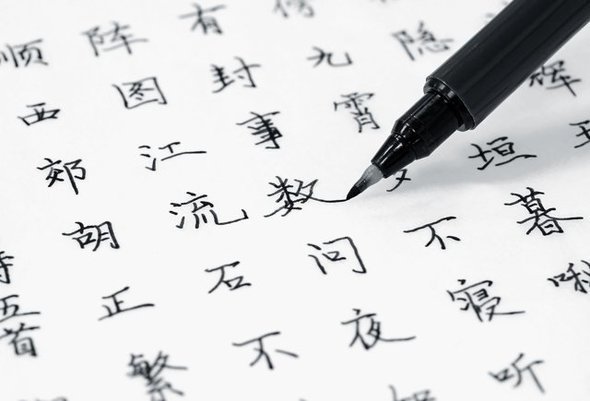 辉五
隐垣暮啾
傍九霄不寝听
有封事数问夜
阵图江流石不
顺西郊胡正繁
五首